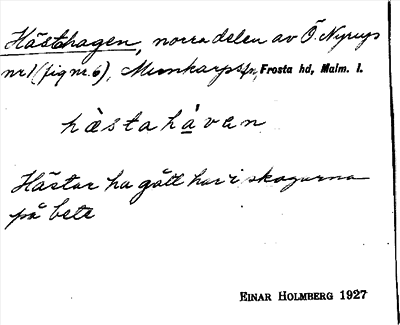 Hästhagen, norra delen av Ö. Nyrups
nr 1 (fig nr. 6), Munkarps sn, Frosta hd, Malm. l.
hästahàven
Hästar ha gått här i skogarna
på bete
EINAR HOLMBERG 1927